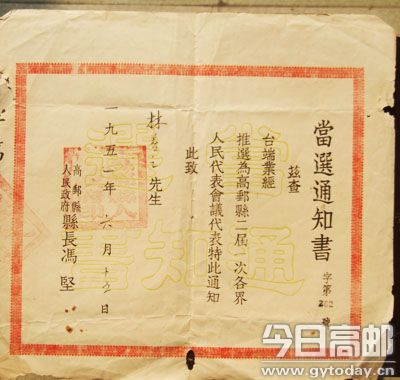 當選通知書
字第號
茲查
台端業經
推選為高郵縣二屆一次各界
人民代表會議代表特此通知
此致
林 先生
高郵縣
人民政府 縣長馮堅
一九五一年六月十日
當選
通知書
今日高邮
www.gytoday.cn